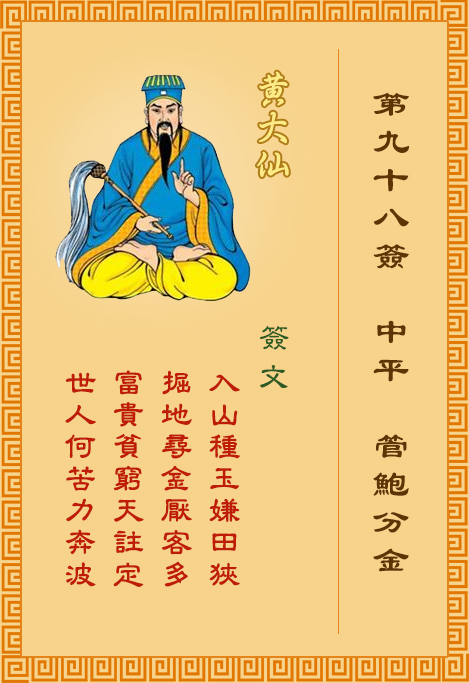 第九十八簽　中平　管鮑分金
黃大仙
簽文
入山種玉嫌田狹
掘地尋金厭客多
富貴貧窮天註定
世人何苦力奔波